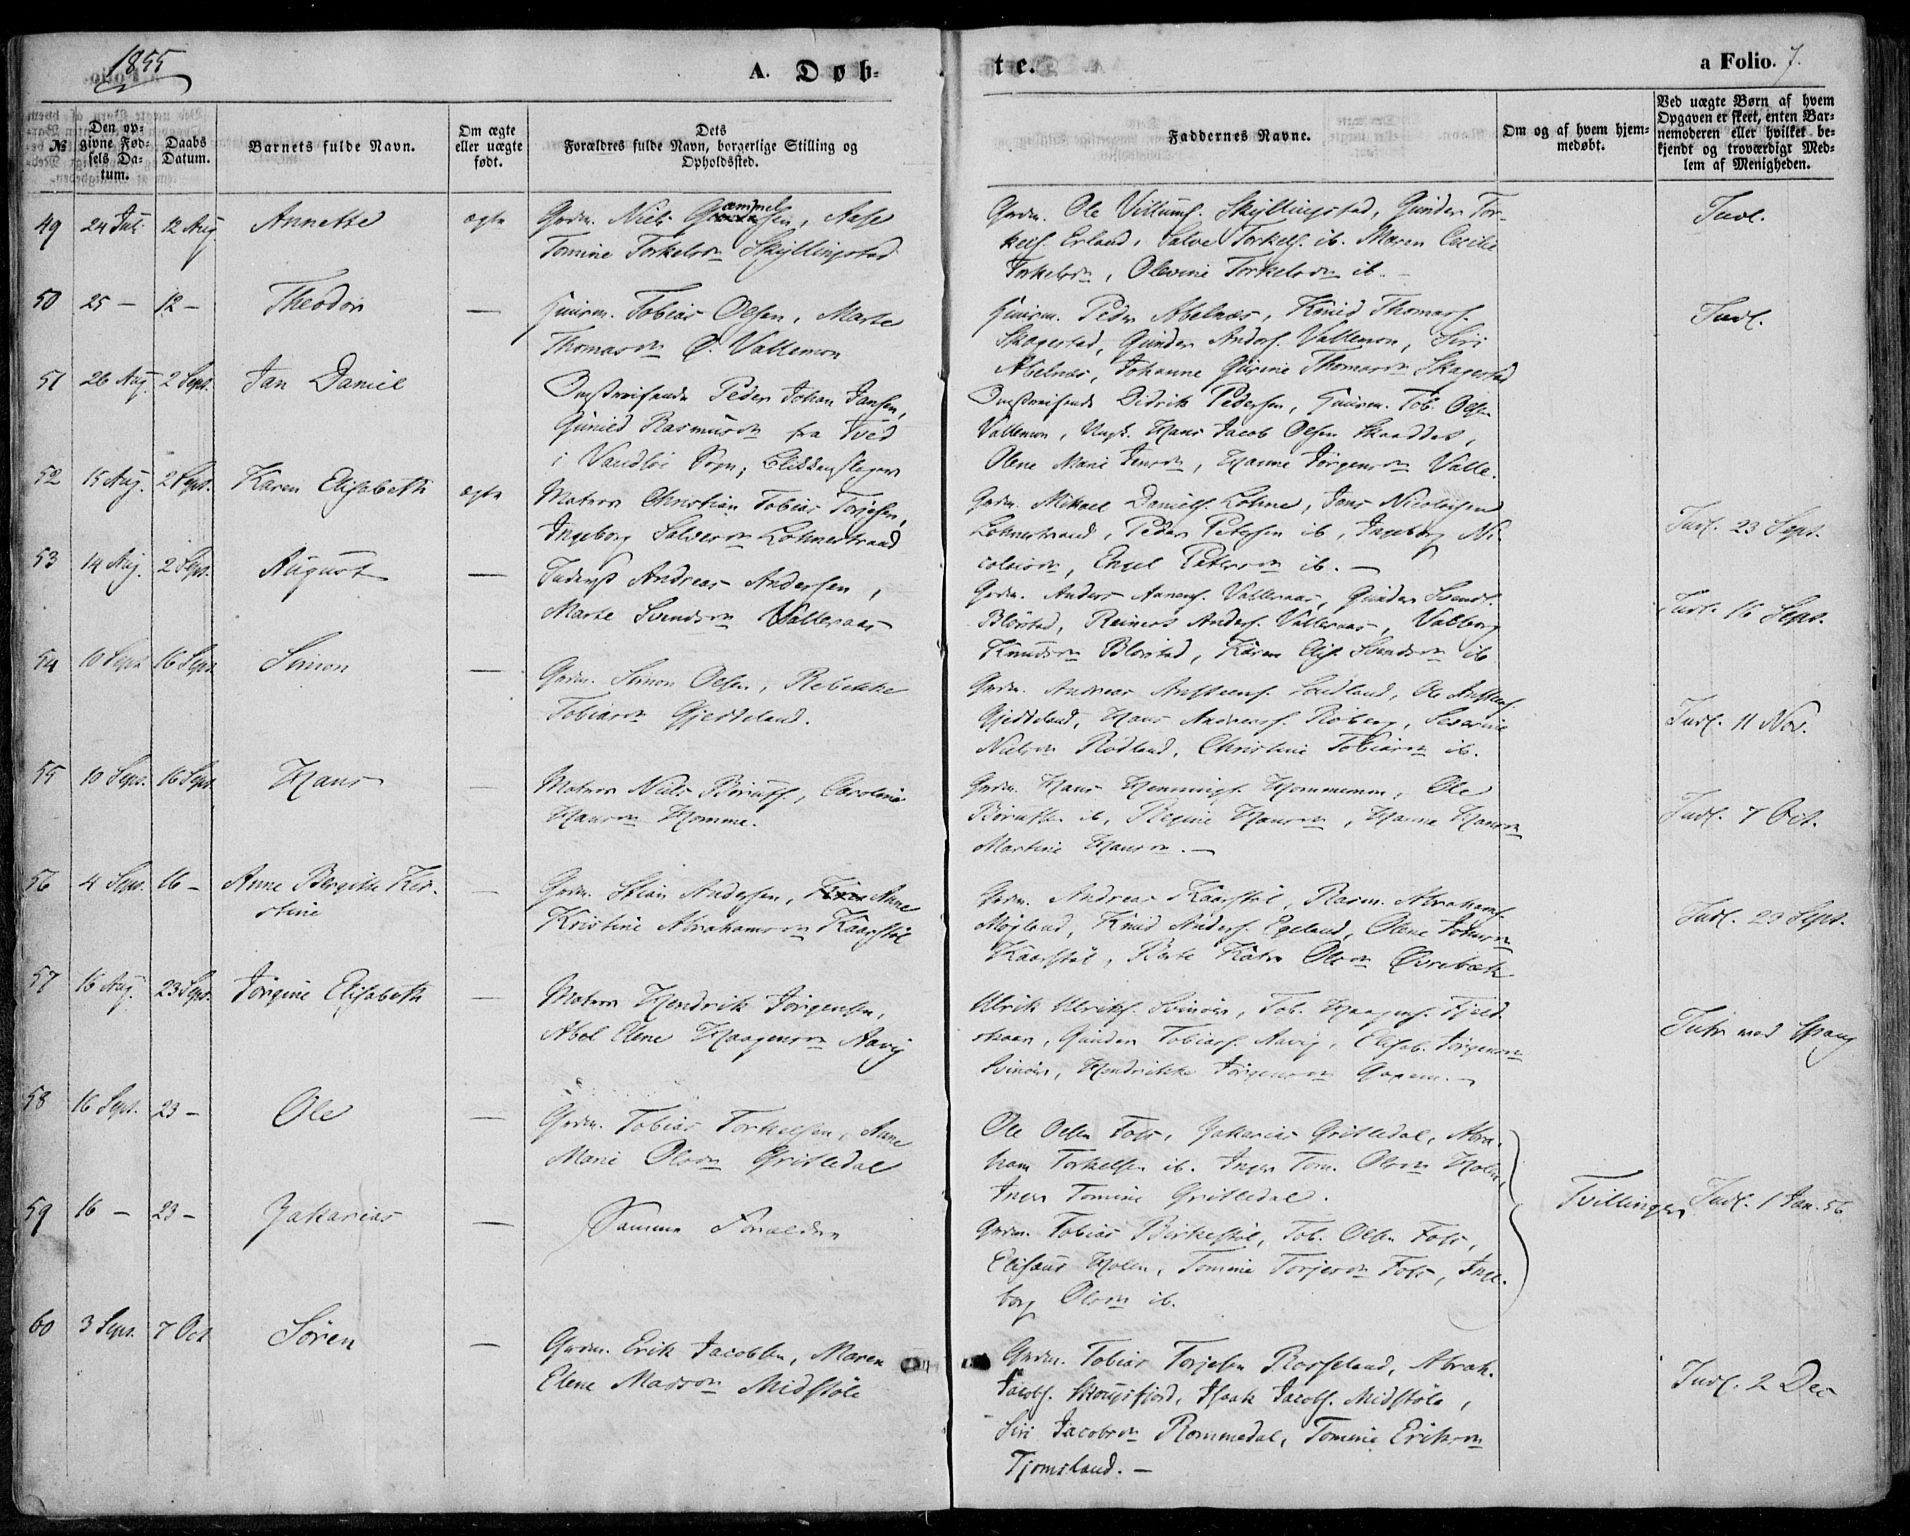 1855
A. Døb-
te.
a Folio. 7.
№
Den op-
givne Fød-
sels Da-
tum.
Daabs
Datum.
Barnets fulde Navn.
Om ægte
eller uægte
født.
Dets
Forældres fulde Navn, borgerlige Stilling og
Opholdssted.
Faddernes Navne.
Om og af hvem hjem-
medøbt.
Ved uægte Børn af hvem
Opgaven er skeet, enten Bar-
nemoderen eller hvilket be-
kjendt og troværdigt Med-
lem af Menigheden.
49 24 Jul. 12 Aug Annette ægte
Grdm. Niels Aase
Tomine Torkelsdn Skyllingstad
Grdm. Ole Villums. Skyllingstad, Gunder Tor-
kels. Erland, Salve Torkels. ib. Maren Cecilie
Torkelsdn, Olevine Torkelsdn ib. -
Indl.
50 25 - 12 - Theodor —
Huusm. Tobias Olsen, Marte
Thomasdn Ø. Vallemon
Huusm. Peder Abelnæs, Knud Thomas.
Skagestad, Gunder Anders. Vallemon, Siri
Abelnæs, Johanne Gurine Thomasdn Skagestad
Indl.
51 26 Aug. 2 Sept. Jan Daniel
Omstreifende Peder Johan Jansen,
Gunild Rasmusdn fra Tved
i Sogn,
Omstreifende Didrik Pedersen, Huusm. Tob. Olsen
Vallemon, Ungk. Hans Jacob Olsen
Olene Marie Jensdn, Hanne Jørgensdn Valle.
52 15 Aug. 2 Sept. Karen Elisabeth ægte
Matros Christian Tobias Terjesen,
Ingeborg Salvesdn Lohnestrand
Grdm. Mikael Daniels. Lohne, Jans Nicolaisen
Lohnestrand, Peder Petersen ib, Ingeborg Ni-
colaisdn, Engel Petersdn ib. —
Indl. 23 Sept.
53 14 Aug. 2 Sept. August —
Inderst Andreas Andersen,
Marte Svendsdn Valleraas
Grdm. Anders Aanens. Valleraas, Gunder Svends.
Blørstad, Reinert Anders. Valleraas, Valborg
Knudsdn Blørstad, Karen Elis. Svendsdn ib
Indl. 16 Sept.
54 10 Sept. 16 Sept. Simon —
Grdm. Simon Olsen, Rebekke
Tobiasdn Gjeddeland.
Grdm. Andreas Ole
Gjeddeland, Hans Andreas. Severine
Nielsdn Rodland, Christine Tobiasdn ib.
Indl. 11 Nov.
55 10 Sept. 16 Sept. Hans —
Matros Niels Caroline
Hansdn Homme.
Grdm. Hans Hennings. Hommemm, Ole
ib, Regine Hansdn, Hanne Hansdn
Martine Hansdn. —
Indl. 7 Oct.
56 4 Sept. 16 - Anne Bergitte Kir- —
stine
Grdm. Stian Andersen, Anne
Kristine Abrahamsdn Kaarstøl
Grdm. Andreas Kaarstøl, Rasm. Abrahams.
Møgland, Knud Anders. Egeland, Olene
Kaarstøl, Berte Katr. Olsdn Øvrebæk
Indl. 23 Sept.
57 16 Aug. 23 Sept. Jørgine Elisabeth —
Matros Hendrik Jørgensen,
Abel Elene Haagensdn Aavig
Ulrik Ulriks. Svinør, Tob. Haagens. Fjeld
skaar, Gunder Tobias. Aavig, Elisab. Jørgensdn
Svinør, Hendrikke Jørgensdn
med Spang
58 16 Sept. 23 - Ole —
Grdm. Tobias Torkelsen, Anne
Marie Olsdn Gritledal
Ole Olsen Foss, Zakarias Gritledal, Abra-
ham Torkelsen ib. Inger Tom. Olsdn Holen,
Inger Tomine Gritledal.
59 16 - 23 - Zakarias —
Samme Forældre
Grdm. Tobias Birkestøl, Tob. Olsen Foss,
Elisæus Holen, Tomine Torjesdn Foss, Inge-
borg Olsdn ib.
Tvillinger
Indl. 1 Jan. 56.
60 3 Sept. 7 Oct Søren —
Grdm. Erik Jacobsen, Maren
Elene Madsdn Midstøle
Grdm. Tobias Torjesen Rosseland, Abrah.
Jacobs. Isaak Jacobs. Midstøle,
Siri Jacobsdn Rommedal, Tomine Eriksdn
Tjomsland. —
Indl. 2 Dec